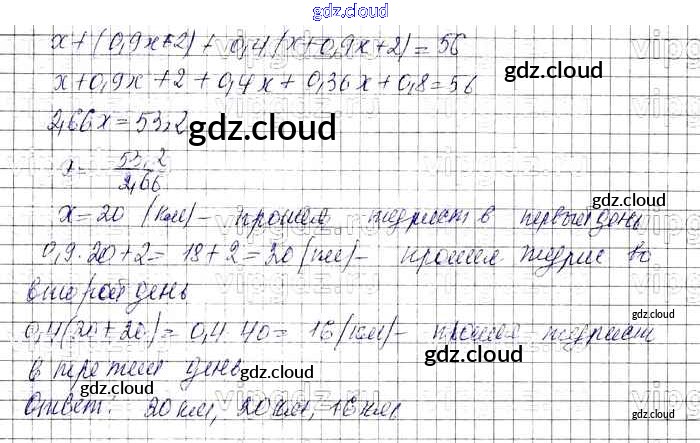 gdz.cloud
x+(0,9x+2)+0,4(x+0,9x+2)=56
x+0,9x+2+0,4x+0,36x+0,8=56
gdz.cloud
2,66x=53,2
gdz.cloud
x= 53,2
2,66
gdz.cloud
x=20 (км)- прошел турист в первый день
0,9·20+2=18+2=20(км)- прошел турис во
gdz.cloud
второй день
gdz.cloud
0,4(20+20)=0,4·40=16(км)- прошел турист
gdz.cloud
в третий день
gdz.cloud
gdz.cloud
Ответ: 20км, 20км, 16км.
gdz.cloud